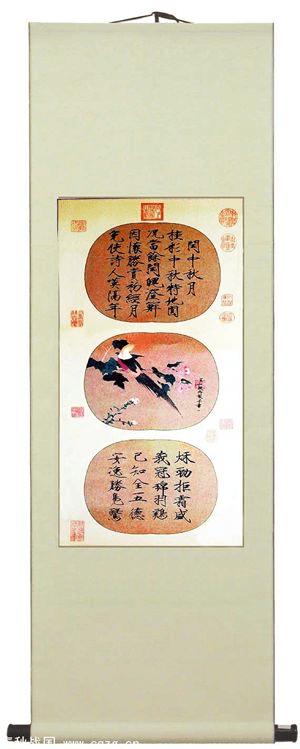 閏中秋月
桂彩中秋特地圓
况當餘閏魄澄鮮
因懷勝賞初經月
免使詩人嘆隔年
秋勁拒霜盛
峩冠錦羽鷄
已知全五德
安逸勝鳧鷖
秋战国 www.cqzg.cn